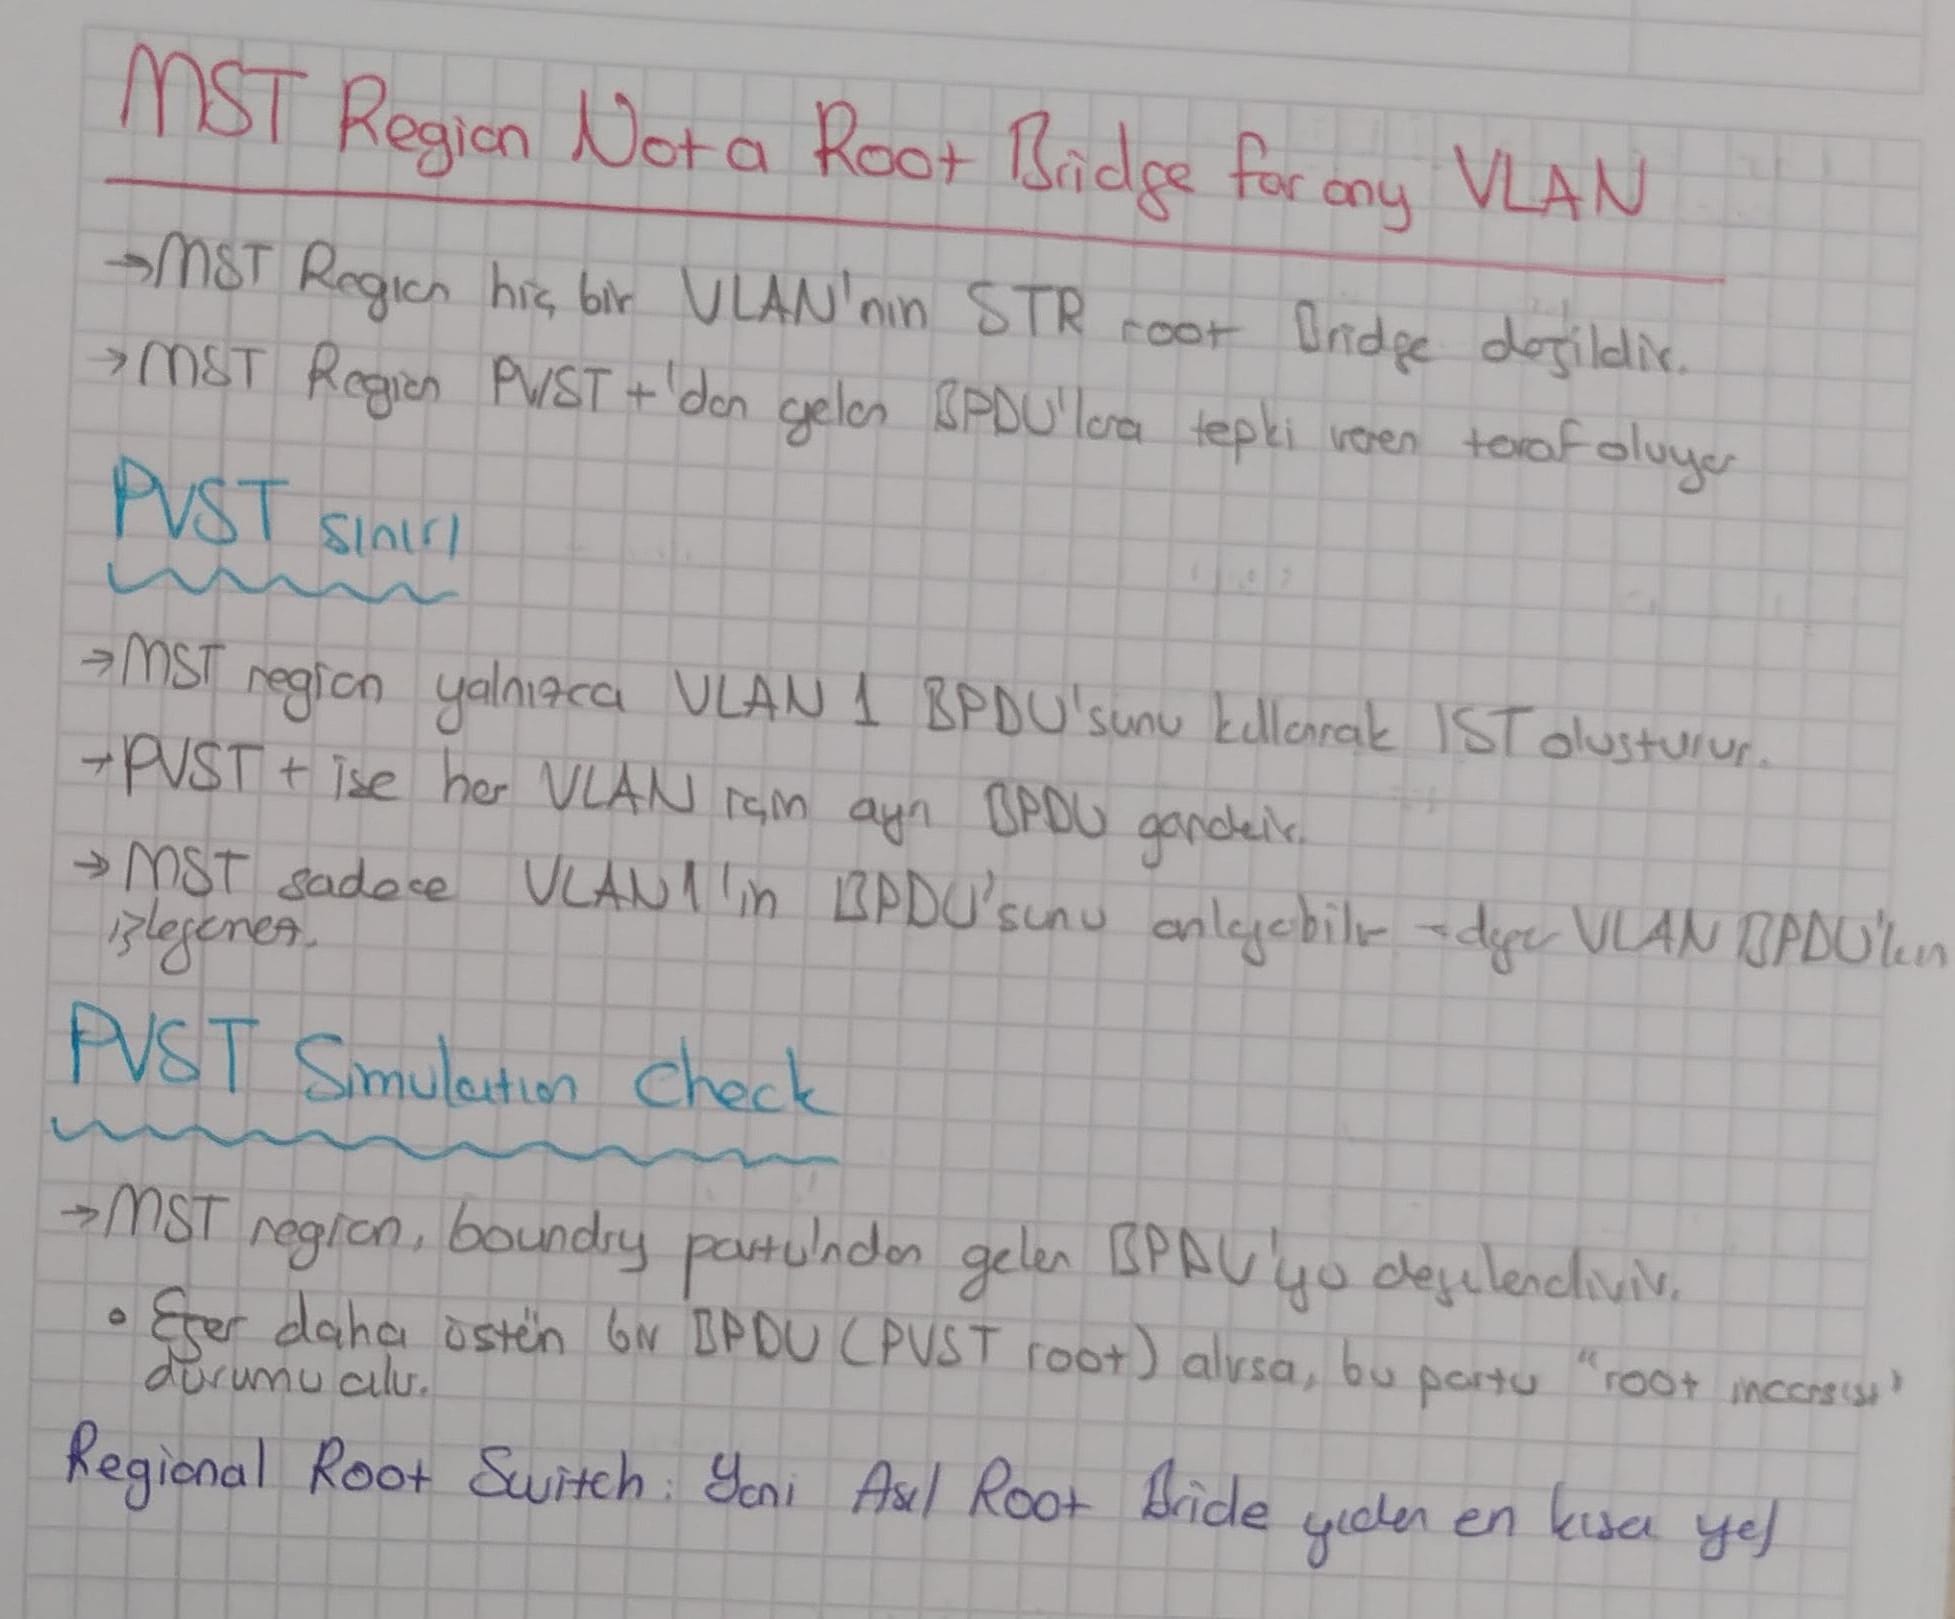 MST Region Not a Root Bridge for any VLAN
→MST Region hiç bir VLAN'nın STR root Bridge değildir.
→MST Region PVST+'dan gelen BPDU'lara tepki veren taraf oluyor
PVST sınırı
→MST region yalnızca VLAN 1 BPDU'sunu kullanarak IST olusturur.
→PVST + ise her VLAN için ayrı BPDU gönderir.
→MST sadece VLAN1'in BPDU'sunu anlayabilir - diğer VLAN BPDU'ları
işleyemez.
PVST Simulation Check
→MST region, boundry portu'ndan gelen BPDU'yu değerlendirir.
• Eğer daha üstün bir BPDU (PVST root) alırsa, bu portu "root inconsist"
durumu alır.
Regional Root Switch: Yani Asıl Root Bride giden en kısa yol